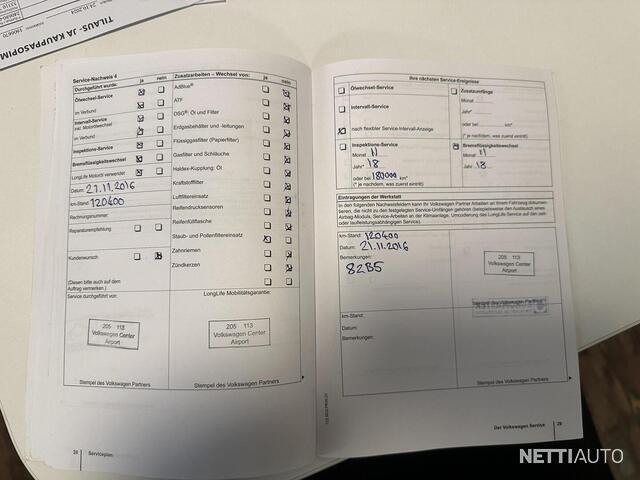 TILAUS- JA KAUPPASOPIM
24.10.2024
1406670
Service-Nachweis 4
Durchgeführt wurde: ja nein
Ölwechsel-Service
im Verbund
Intervall-Service
inkl. Motorölwechsel
im Verbund
Inspektions-Service
Bremsflüssigkeitswechsel
LongLife Motoröl verwendet
Datum: 21.11.2016
km-Stand: 120400
Rechnungsnummer:
Reparaturempfehlung
Kundenwunsch
(Diesen bitte auch auf dem
Auftrag vermerken.)
Service durchgeführt von:
205 113
Volkswagen Center
Airport
Stempel des Volkswagen Partners
Zusatzarbeiten – Wechsel von: ja nein
AdBlue®
ATF
DSG®: Öl und Filter
Erdgasbehälter und -leitungen
Flüssiggasfilter (Papierfilter)
Gasfilter und Schläuche
Haldex-Kupplung: Öl
Kraftstofffilter
Luftfiltereinsatz
Reifendrucksensoren
Reifenfüllflasche
Staub- und Pollenfiltereinsatz
Zahnriemen
Zündkerzen
LongLife Mobilitätsgarantie:
205 113
Volkswagen Center
Airport
Stempel des Volkswagen Partners
28 Serviceplan
Ihre nächsten Service-Ereignisse
Ölwechsel-Service
Intervall-Service
nach flexibler Service-Intervall-Anzeige
Zusatzumfänge
Monat
Jahr*
oder bei km*
(* je nachdem, was zuerst eintritt)
Inspektions-Service
Monat 11
Jahr* 18
oder bei 180000 km*
(* je nachdem, was zuerst eintritt)
Bremsflüssigkeitswechsel
Monat 11
Jahr 18
Eintragungen der Werkstatt
In den folgenden Nachweisfeldern kann Ihr Volkswagen Partner Arbeiten an Ihrem Fahrzeug dokumentieren, die nicht zu den festgelegten Service-Umfängen gehören (beispielsweise den Austausch eines
Airbag-Moduls, Service-Arbeiten an der Klimaanlage, Umcodierung des LongLife-Service auf den zeit-
oder laufleistungsabhängigen Service).
km-Stand: 120400
Datum: 21.11.2016
Bemerkungen:
82B5
205 113
Volkswagen Center
Airport
Stempel des Volkswagen Partners
km-Stand:
Datum:
Bemerkungen:
Stempel des Volkswagen Partners
Der Volkswagen Service 29
NETTIAUTO